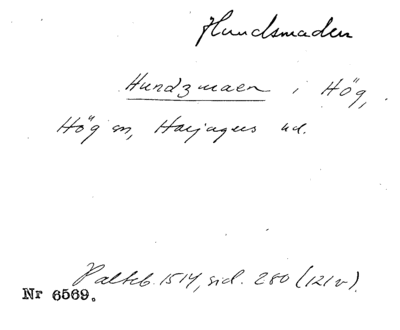 Hundsmaden
Hundzmaen i Hög,
Hög sn, Harjagers hd.
Palteb. 1514, sid. 280 (121v).
Nr 6569.